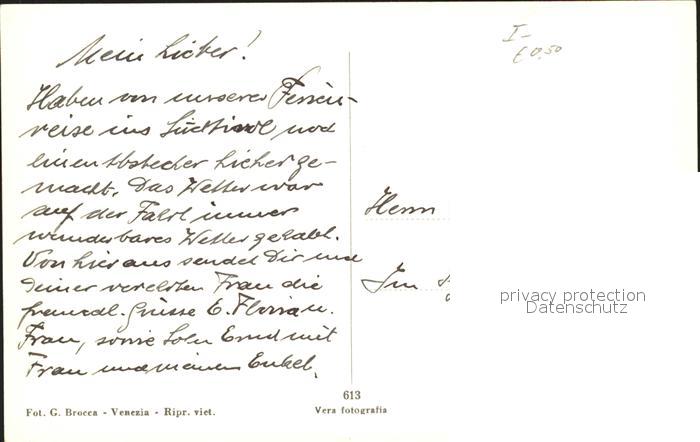 I-
€ 0,50
Mein Lieber!
Haben von unserer Ferien-
reise ins Südtirol noch
einen Abstecher hieher ge-
macht. Das Wetter war
auf der Fahrt immer
wunderbares Wetter gehabt.
Von hier aus sendet Dir und
Deiner verehrten Frau die
freundl. Grüsse E. Florian.
Frau, sowie Sohn Ernd mit
Frau und meinen Enkel.
Herrn
Im
privacy protection
Datenschutz
613
Fot. G. Brocca - Venezia - Ripr. viet.
Vera fotografia